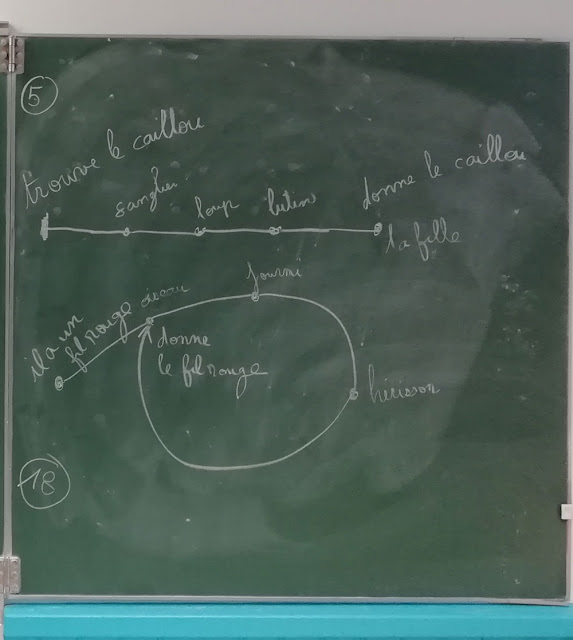 5
trouve le caillou
sanglier
loup
lutin
donne le caillou
la fille
il a un
fil rouge
oiseau
fourmi
donne
le fil rouge
hérisson
18